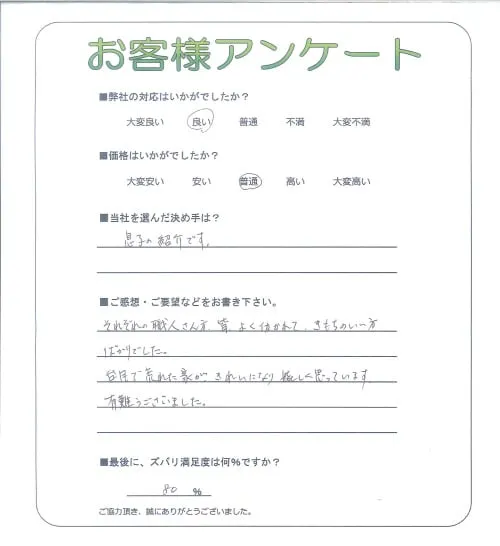 お客様アンケート
■弊社の対応はいかがでしたか？
大変良い 良い 普通 不満 大変不満
■価格はいかがでしたか？
大変安い 安い 普通 高い 大変高い
■当社を選んだ決め手は？
息子の紹介です。
■ご感想・ご要望などをお書き下さい。
それぞれの職人さん方、皆よく働かれて、きもちのいい方
ばかりでした。
台風で荒れた家が、きれいになり嬉しく思っています。
有難うございました。
■最後に、ズバリ満足度は何%ですか？
80 %
ご協力頂き、誠にありがとうございました。